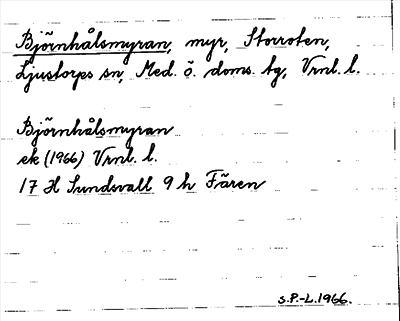 Björnhålsmyran, myr, Storroten,
Ljustorps sn, Med. ö. doms. tg, Vrnl. l.
Björnhålsmyran
ek (1966) Vrnl. l.
17 H Sundsvall 9 h Fären
S.P.-L. 1966.